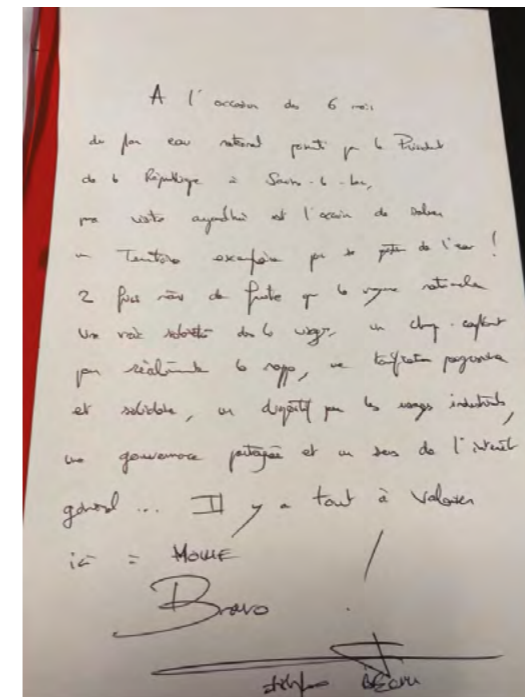 A l'occasion des 6 mois
du plan eau national présenté par le Président
de la République à Savines-le-Lac,
ma visite aujourd'hui est l'occasion de saluer
un Territoire exemplaire pour sa gestion de l'eau !
2 fois moins de fuite que la moyenne nationale
Une vraie sobriété dans les usages, un champ-captant
pour réalimenter la nappe, une tarification progressive
et solidaire, un dispositif pour les usages industriels,
une gouvernance partagée et un sens de l'intérêt
général ... Il y a tout à valoriser
ici à
Bravo !